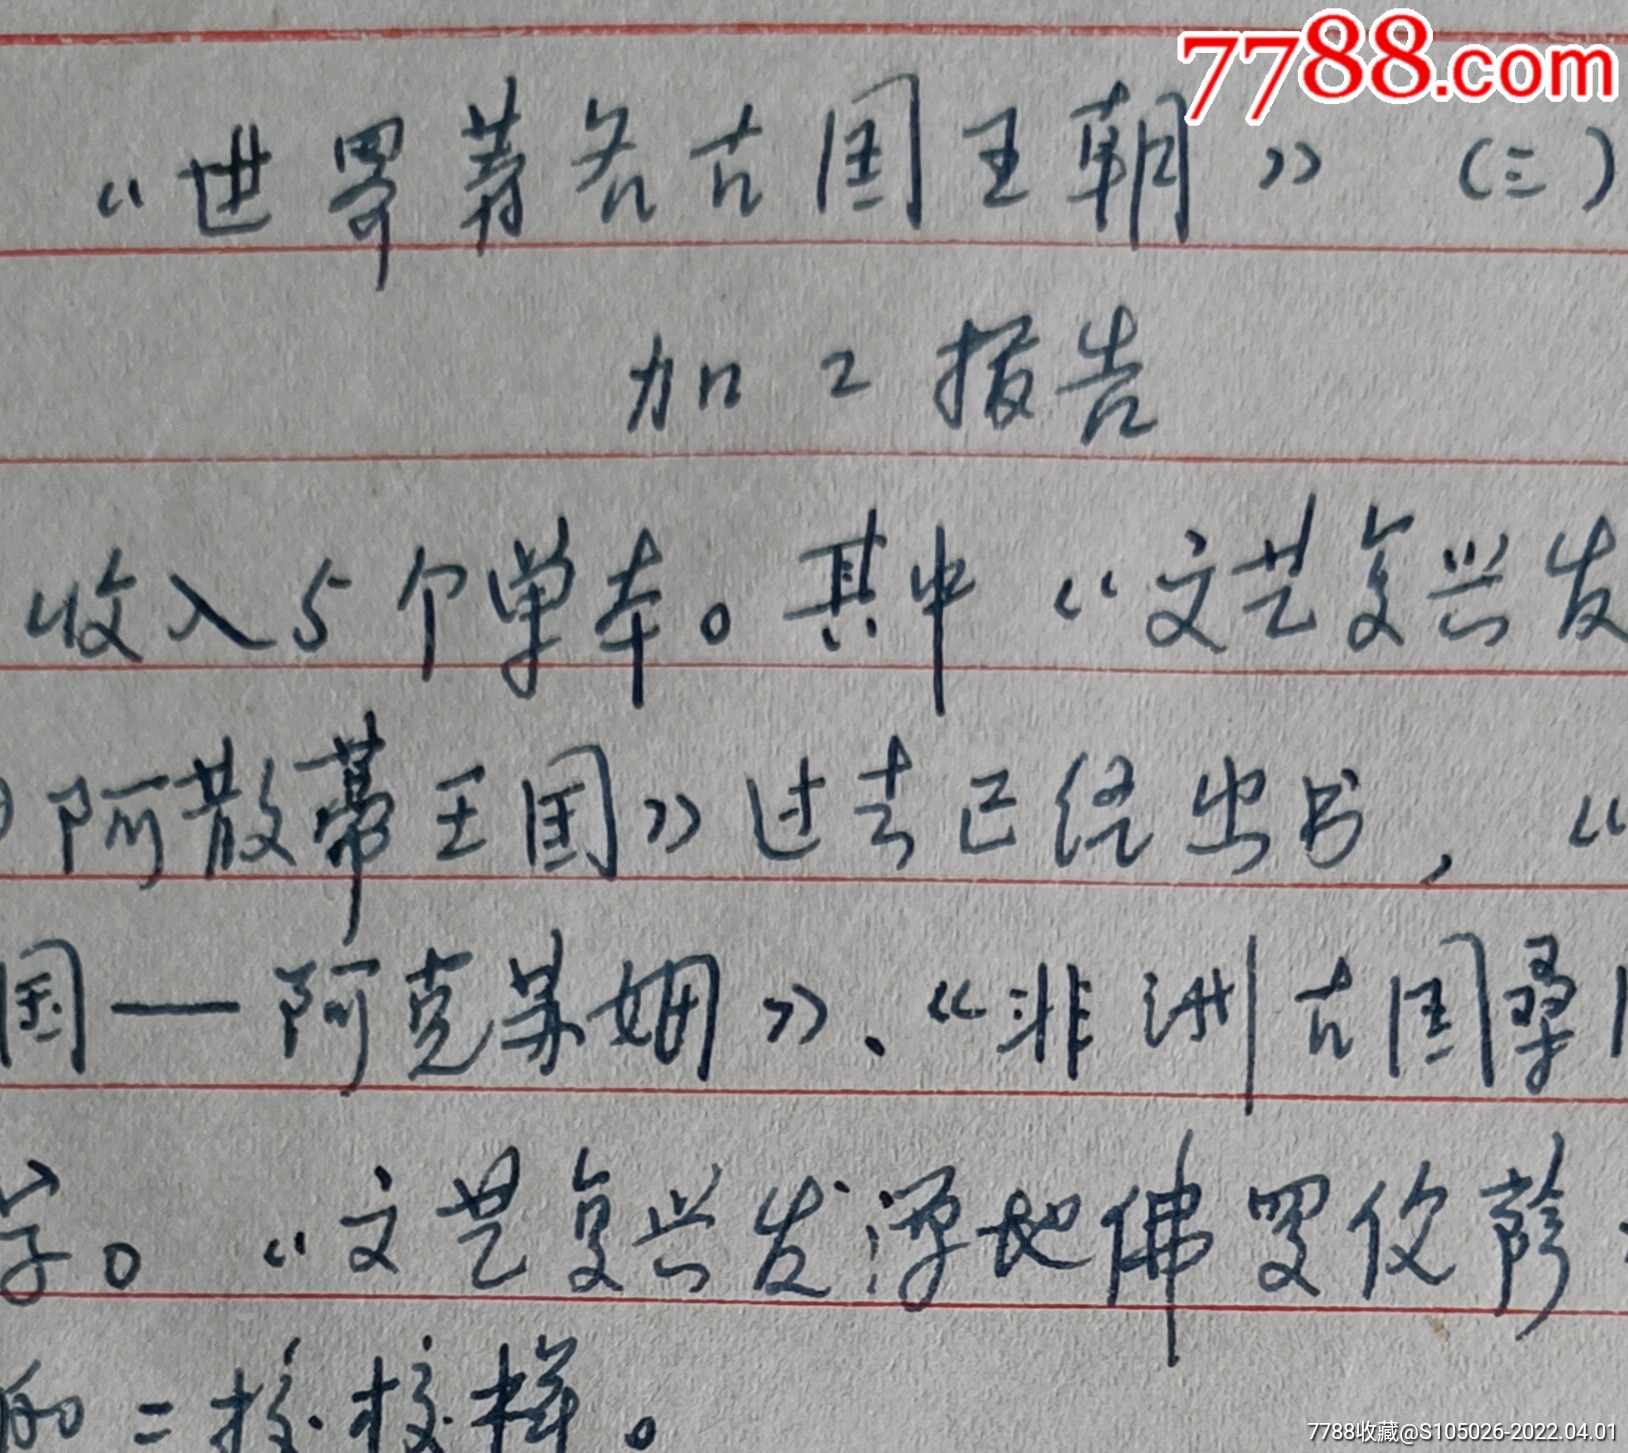 7788.com
《世界著名古国王朝》(三)
加工报告
收入5个单本。其中《文艺复兴发
阿散蒂王国》过去已经出书，《
国——阿克苏姆》、《非洲古国桑
字。《文艺复兴发源地佛罗伦萨
的二校校样。
7788收藏@S105026-2022.04.01